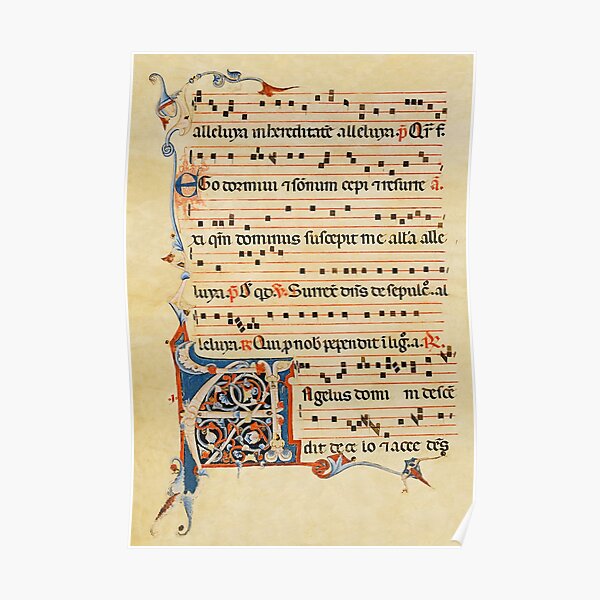 alleluya in hereditatē alleluya. p̄ Qr̄ f.
EGo dormiui ⁊ sōnum cepi ⁊ resurre a̅.
xi qm̄ dominus suscepit me all'a alle
luya. p̄ qd. V̄. Surrex̄ dn̄s de sepulc̄. al
leluya. R̄ Qui p nob pependit ī lig̅. a. R̄.
Angelus domi ni descē
dit de ce lo ⁊ acce dēs